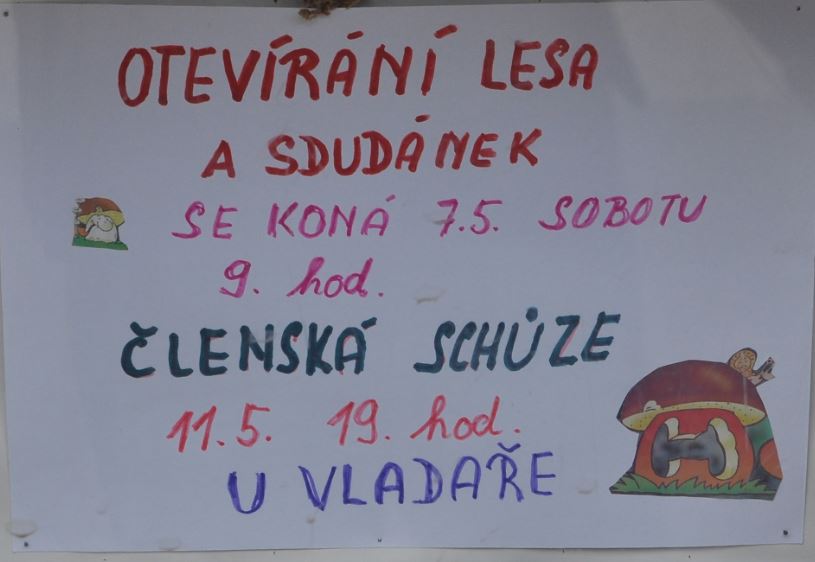 OTEVÍRÁNÍ LESA
A SDUDÁNEK
SE KONÁ 7.5. SOBOTU
9. hod.
ČLENSKÁ SCHŮZE
11.5. 19. hod.
U VLADAŘE